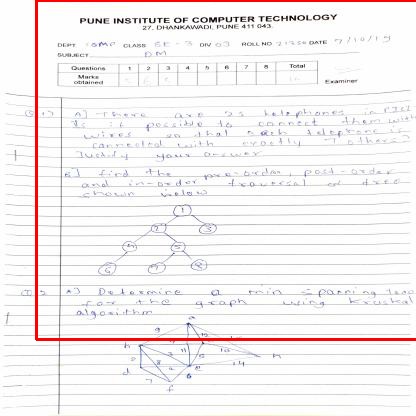 PUNE INSTITUTE OF COMPUTER TECHNOLOGY
27, DHANKAWADI, PUNE 411 043.
DEPT COMP CLASS SE - 3 DIV 03 ROLL NO DATE 7/10/19
SUBJECT DM
Questions 1 2 3 4 5 6 7 8 Total
Marks obtained
Examiner
A] There are 25 telephones in
Is it possible to connect them with
wires so that each telephone is
connected with exactly 7 others?
Justify your answer
B] find the pre-order, post-order
and in-order traversal of tree
shown below
1
2 3
4 5
6 7 8
A] Determine a min spanning tree
for the graph using Kruskal
algorithm
a
9
h
10
14
d
7
f
6